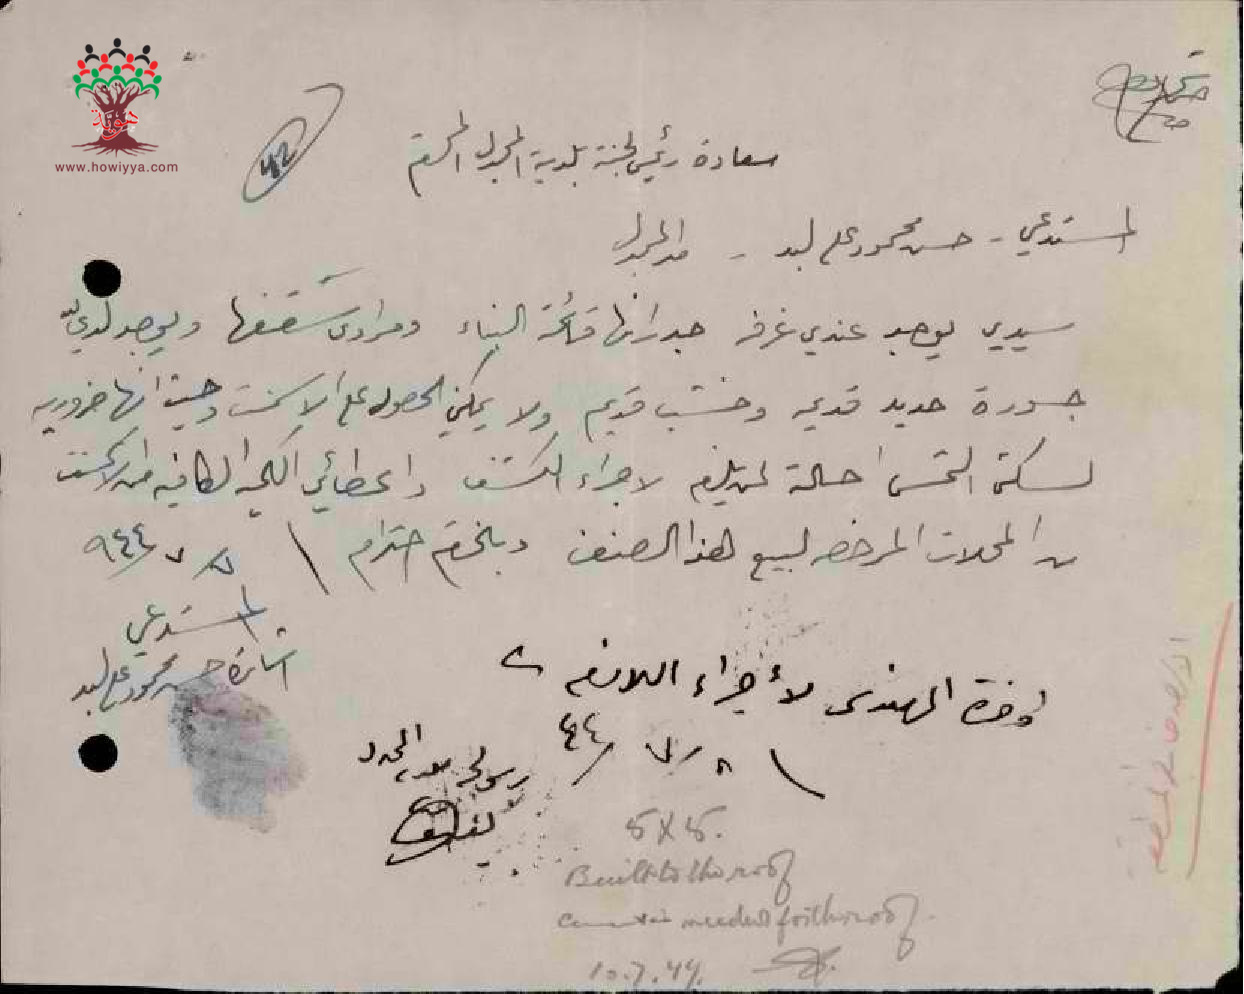 هوية
www.howiyya.com
٤٢
سعادة رئيس لجنة بلدية المجدل المحترم
المستدعي - حسن محمود علي لبد - من المجدل
سيدي يوجد عندي غرفة جدرانها قائمة البناء ومرادي سقفها ويوجد لدي
جسورة حديد قديمة وخشب قديم ولا يمكني الحصول على الاسمنت وحيث انها ضرورية
لسكني التمس احالة لمن يلزم لاجراء الكشف واعطائي الكمية الكافية من الاسمنت
من المحلات المرخصة لبيع هذا الصنف وبالختام احترام
٨/٧/٩٤٤
المستدعي
اشارة حسن محمود علي لبد
المهندس لأجراء اللازم
٨/٧/٤٤
رئيس لجنة بلدية المجدل
5 X 5.
Built to the roof
Cement is needed for the roof.
10.7.44.